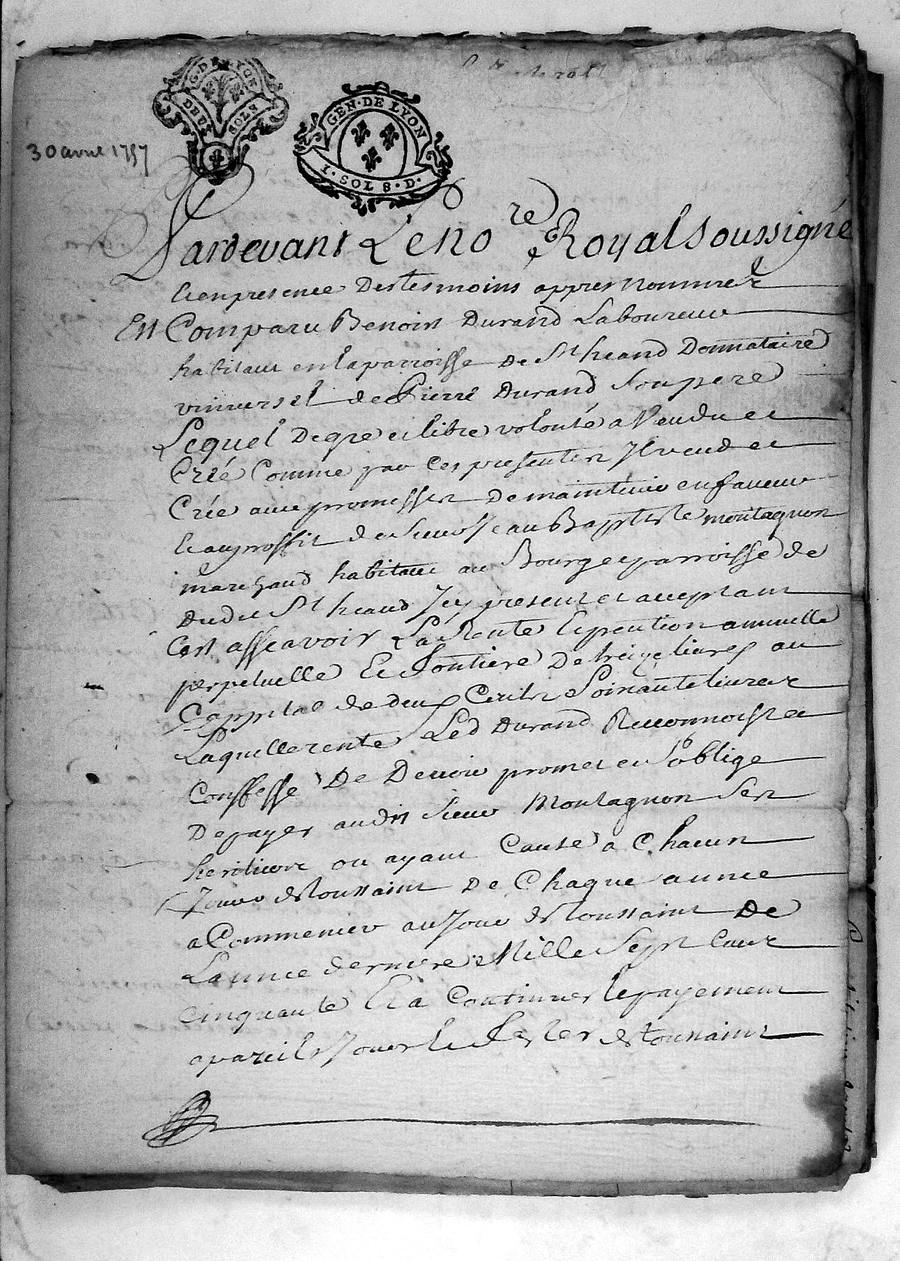 G. DE LYON
DEUX SOLS
GEN · DE LYON
1 · SOL 8 · D ·
30 avril 1757
Pardevant Le no.re Royal Soussigné
Et en presence Des tesmoins appres nommez
Est Comparu Benoist Durand Laboureur
habitant en la parroisse de St heand Donnataire
vniversel de Pierre Durand Son pere
Lequel De gre et libre volonté a Vendu et
Créé Comme par ces presentes Il vend et
Crée avec promesse De maintenir en faveur
Et au proffit de Sieur Jean Baptiste montagnon
marchand habitant au Bourg et parroisse de
Dudit St heand Icy present et acceptant
C'est assçavoir La Rente Et pention annuelle
perpetuelle Et fontiere De treize livres au
Cappital de deux Cents Soixante livres
Laquelle rente Led Durand Reconnoist et
Confesse De Devoir promet et S'oblige
De payer audit Sieur Montagnon Ses
heritiers ou ayant Cause a Chacun
Jour de toussaint De Chaque année
a Commencer au Jour de toussaint De
L'année derniere Mille Sept Cent
Cinquante Et a Continuer le payement
a pareils Jour et feste de toussaint